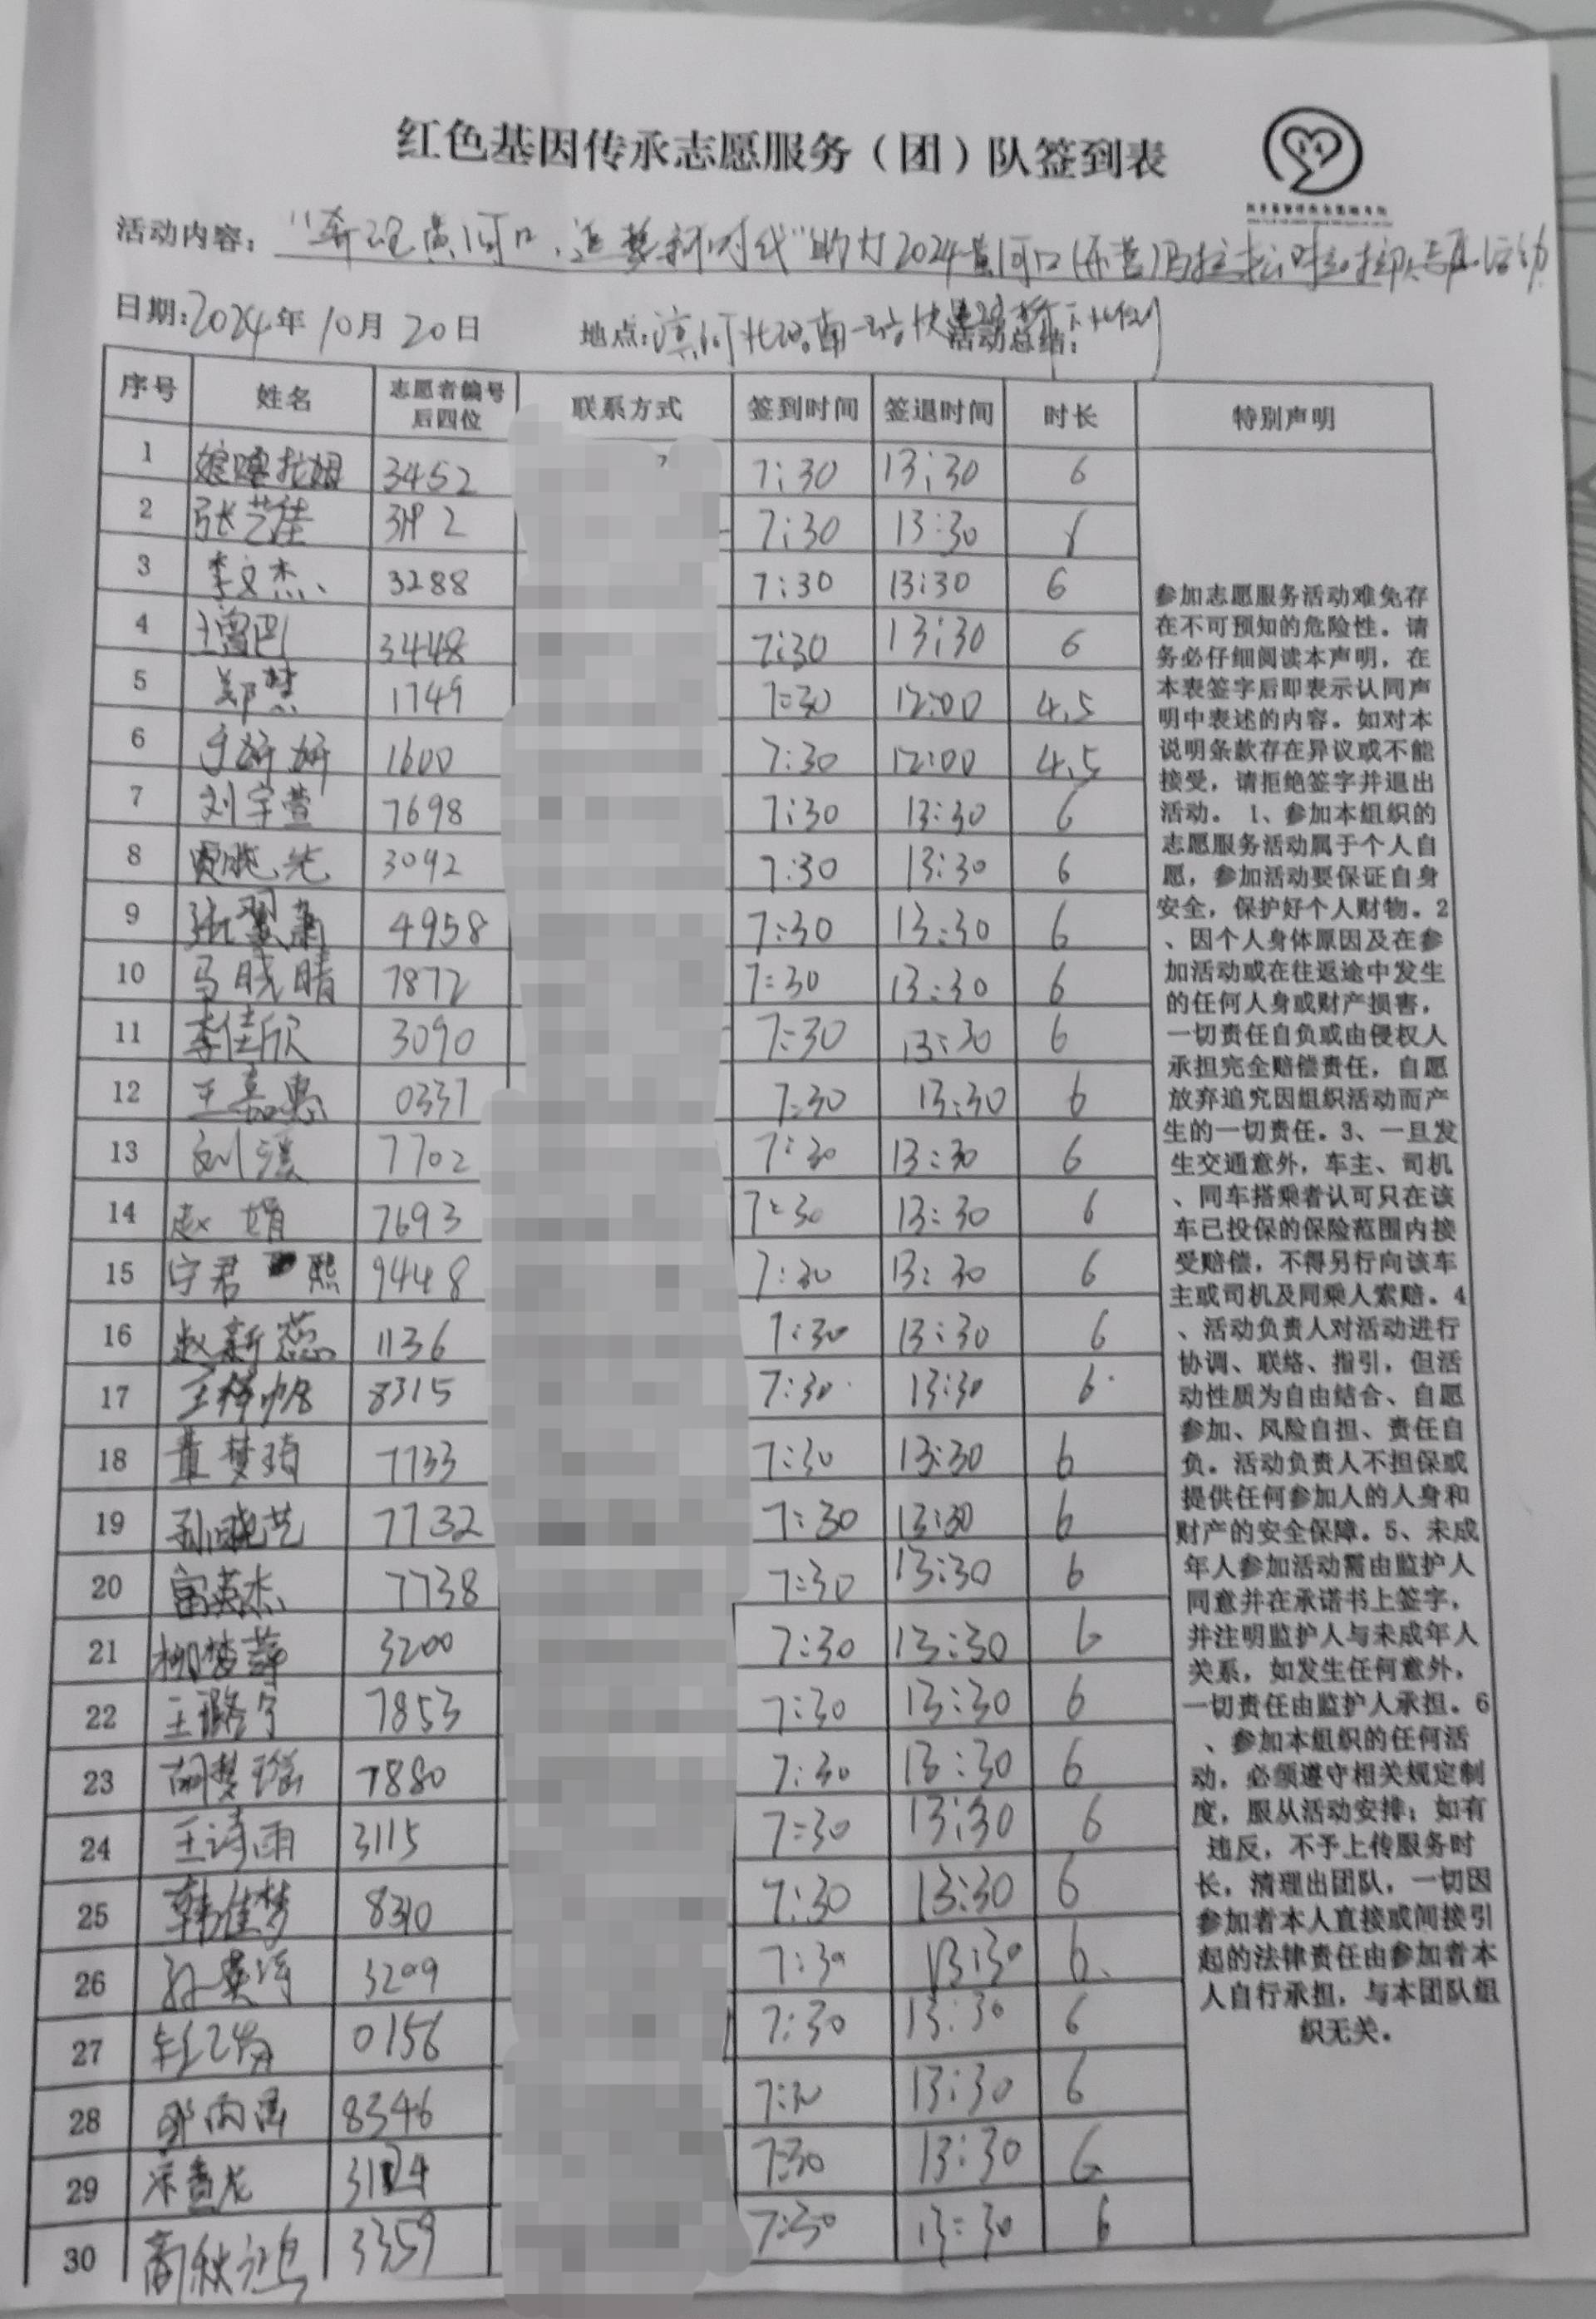 红色基因传承志愿服务（团）队签到表
活动内容： 黄河口 追梦新时代"助力2024黄河口（东营）马拉松 活动
日期：2024年10月20日 地点： 活动总结：
序号 姓名 志愿者编号后四位 联系方式 签到时间 签退时间 时长 特别声明
1 拉姆 3452 7:30 13:30 6
2 张艺佳 7:30 13:30
3 李文杰 3288 7:30 13:30 6
4 3448 7:30 13:30 6
5 郑慧 1749 7:30 12:00 4.5
6 于妍妍 1600 7:30 12:00 4.5
7 刘宇萱 7698 7:30 13:30 6
8 3092 7:30 13:30 6
9 4958 7:30 13:30 6
10 马晓晴 7872 7:30 13:30 6
11 李佳欣 3090 7:30 13:30 6
12 王嘉惠 0337 7:30 13:30 6
13 7702 7:30 13:30 6
14 赵娟 7693 7:30 13:30 6
15 宁君熙 9448 7:30 13:30 6
16 赵新蕊 1136 7:30 13:30 6
17 8315 7:30 13:30 6
18 董梦琦 7733 7:30 13:30 6
19 孙晓艺 7732 7:30 13:30 6
20 富英杰 7738 7:30 13:30 6
21 柳梦萍 3200 7:30 13:30 6
22 王璐宁 7853 7:30 13:30 6
23 胡梦瑶 7880 7:30 13:30 6
24 王诗雨 3115 7:30 13:30 6
25 韩佳梦 7:30 13:30 6
26 3209 7:30 13:30 6
27 0156 7:30 13:30 6
28 8346 7:30 13:30 6
29 7:30 13:30 6
30 3359 7:30 13:30 6
参加志愿服务活动难免存
在不可预知的危险性。请
务必仔细阅读本声明，在
本表签字后即表示认同声
明中表述的内容。如对本
说明条款存在异议或不能
接受，请拒绝签字并退出
活动。 1、参加本组织的
志愿服务活动属于个人自
愿，参加活动要保证自身
安全，保护好个人财物。2
、因个人身体原因及在参
加活动或在往返途中发生
的任何人身或财产损害，
一切责任自负或由侵权人
承担完全赔偿责任，自愿
放弃追究因组织活动而产
生的一切责任。3、一旦发
生交通意外，车主、司机
、同车搭乘者认可只在该
车已投保的保险范围内接
受赔偿，不得另行向该车
主或司机及同乘人索赔。4
、活动负责人对活动进行
协调、联络、指引，但活
动性质为自由结合、自愿
参加、风险自担、责任自
负。活动负责人不担保或
提供任何参加人的人身和
财产的安全保障。5、未成
年人参加活动需由监护人
同意并在承诺书上签字，
并注明监护人与未成年人
关系，如发生任何意外，
一切责任由监护人承担。6
、参加本组织的任何活
动，必须遵守相关规定制
度，服从活动安排；如有
违反，不予上传服务时
长，清理出团队，一切因
参加者本人直接或间接引
起的法律责任由参加者本
人自行承担，与本团队组
织无关。